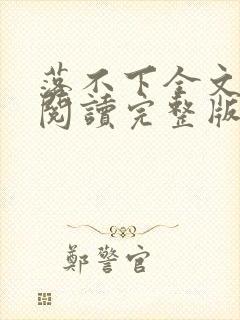 落不下全文
閱讀完整版
鄭警官